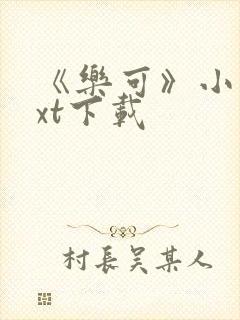 《樂可》小
xt下載
村長吴某人